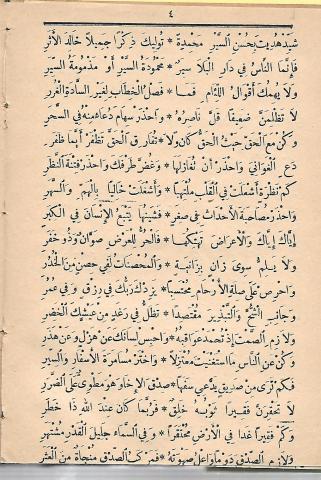 ٤
شيد هديت بحسن السير محمدة * توليك ذكرا جميلا خالد الأثر
فإنما الناس في دار البلا سير * محمودة السير أو مذمومة السير
ولا يهمك أقوال اللئام فما * فصل الخطاب لغير السادة الغرر
لا تظلمن ضعيفا قل ناصره * واحذر سهام دعاء منه في السحر
وكن مع الحق حيث الحق كان ولا * تفارق الحق تظفر أيما ظفر
دع الغواني واحذر أن تغازلها * وغض طرفك واحذر فتنة النظر
كم نظرة أشعلت في القلب ملتهبا * وأشغلت خاليا بالهم والسهر
واحذر مصاحبة الأحداث في صغر * فشينها يتبع الإنسان في الكبر
إياك إياك والأعراض تهتكها * فالحر للعرض صوان وذو خفر
ولا يلم سوى زان بزانية * والمحصنات لفي حصن من الخدر
واحرص على صلة الأرحام محتسبا * يزدك ربك في رزق وفي عمر
وجانب الشح والتبذير مقتصدا * تظل في رغد من عيشك الخضر
ولازم الصمت إذ تحمد عواقبه * واحبس لسانك عن هزل وعن هذر
وكن عن الناس ما استغنيت معتزلا * واختر مسامرة الأسفار والسير
فكم ترى من صديق يدعي سفها * صدق الإخا وهو مطوي على الضرر
لا تحقرن فقيرا ثوبه خلق * فربما كان عند الله ذا خطر
وكم فقيرا غدا في الأرض محتقرا * وفي السماء جليل القدر مشتهر
ولازم الصدق دوما واعل صهوته * فمركب الصدق منجاة من العثر